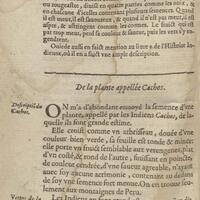 ou rougeastre, diuisé en quatre parties comme les noix, &
en chacune d'icelles contenant plusieurs semences. Quand il
est meur, il est sauoureux, & quand il n'est pas meur, il est
aspre, & astringent comme les cormes. Le fruict qui est
par terre, perd sa couleur & saueur, puis, les vers s'y en-
gendrent.
Ouiede aussi en faict mention au liure 9. de l'Histoire In-
dienne, où il en faict vne ample description.
De la plante appellée Cachos.
Descriptiō du
Cachos.
ON m'a d'abondant enuoyé la semence d'vne
plante, appellé par les Indiens Cachos, de la-
quelle ils font grande estime.
Elle croist comme vn arbrisseau, douée d'vne
couleur bien verde, sa feuille est ronde & tenue:
elle porte vn fruict semblable aux verengenes, plat
d'vn costé, & rond de l'autre, finissant en poincte,
de couleur cendrée, d'vn goust agreable, & n'ayant
avec soy aucune acrimonie, contenant au dedans
de soy vne semence fort menue. On en trouue seu-
lement aux montaignes de Peru.
Vertus de la
Les Indiens en font grand